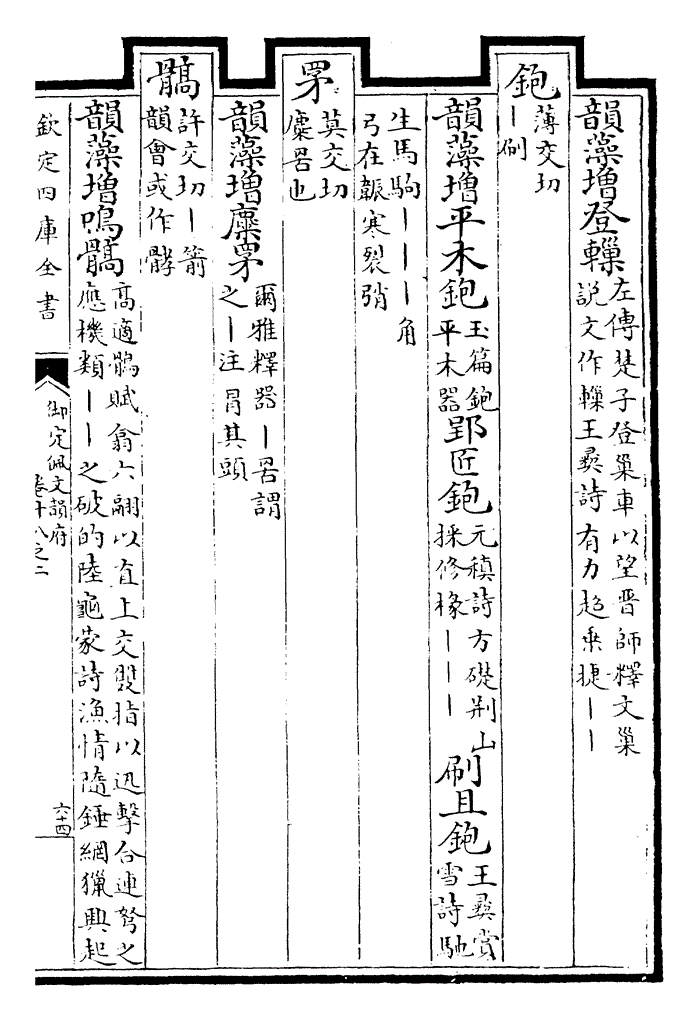 韻藻增登轈
左傳楚子登巢車以望晉師釋文巢
說文作轈王彞詩有力超乗捷丨丨
鉋
薄交切
丨刷
韻藻增平木鉋
玉篇鉋
平木器
郢匠鉋
元稹詩方礎荆山
採修椽丨丨丨
刷且鉋
王彞賞
雪詩馳
生馬駒丨丨丨角
弓在韔寒裂弰
罞
莫交切
麋罟也
韻藻增麋罞
爾雅釋器丨罟謂
之丨注冒其頭
髇
許交切丨箭
韻會或作
韻藻增鳴髇
高適鶻賦翕六翮以直上交雙指以迅擊合連弩之
應機類丨丨之破的陸龜蒙詩漁情隨錘網獵興起
欽定四庫全書
御定佩文韻府
卷十八之二
六十四